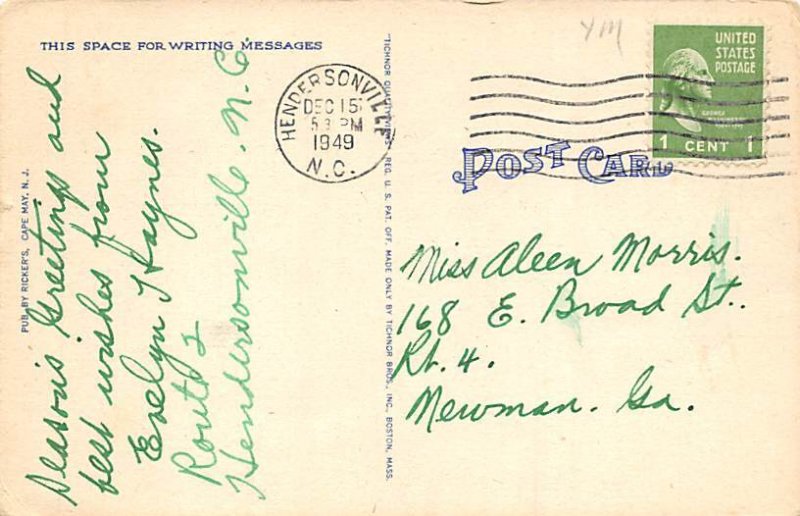 THIS SPACE FOR WRITING MESSAGES
Season's Greetings and
best wishes from
Evelyn Haynes.
Route 2
Hendersonville. N.C.
PUB. BY RICKER'S, CAPE MAY, N. J.
HENDERSONVILLE
DEC 15
PM
1949
N.C.
REG. U. S. PAT. OFF. MADE ONLY BY TICHNOR BROS., INC., BOSTON, MASS.
YM
UNITED
STATES
POSTAGE
1 CENT 1
POST CARD
Miss Aleen Morris.
168 E. Broad St.
Rt. 4.
Newman. Ga.